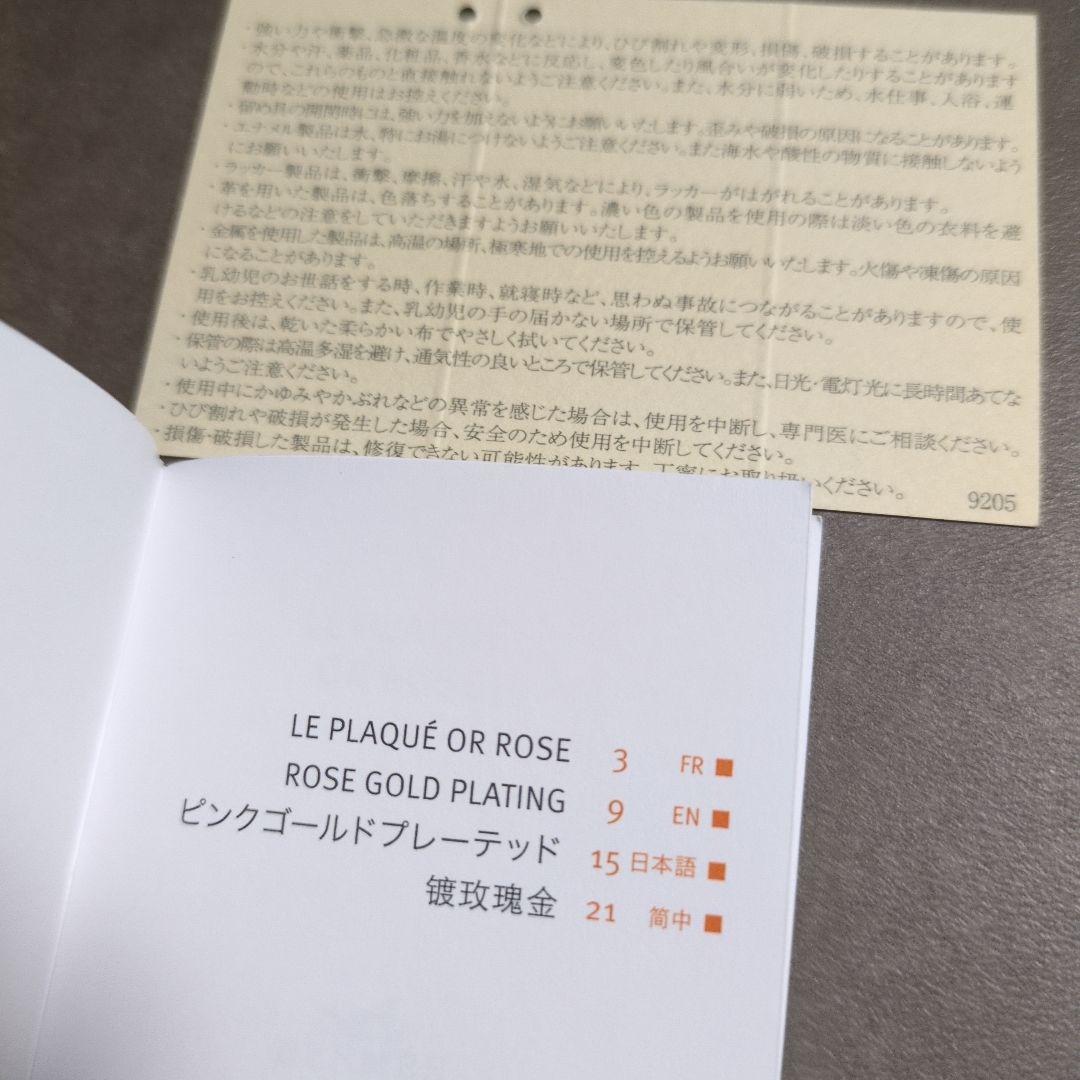 ・強い力や衝撃、急激な温度の変化などにより、ひび割れや変形、損傷、破損することがあります。
・水分や汗、薬品、化粧品、香水などに反応し、変色したり風合いが変化したりすることがあります
ので、これらのものと直接触れないようご注意ください。また、水分に弱いため、水仕事、入浴、運
動時などの使用はお控えください。
・留め具の開閉時には、強い力を加えないようにお願いいたします。歪みや破損の原因になることがあります。
・エナメル製品は水、特にお湯につけないようご注意ください。また海水や酸性の物質に接触しないよう
にお願いいたします。
・ラッカー製品は、衝撃、摩擦、汗や水、湿気などにより、ラッカーがはがれることがあります。
・革を用いた製品は、色落ちすることがあります。濃い色の製品を使用の際は淡い色の衣料を避
けるなどの注意をしていただきますようお願いいたします。
・金属を使用した製品は、高温の場所、極寒地での使用を控えるようお願いいたします。火傷や凍傷の原因
になることがあります。
・乳幼児のお世話をする時、作業時、就寝時など、思わぬ事故につながることがありますので、使
用をお控えください。また、乳幼児の手の届かない場所で保管してください。
・使用後は、乾いた柔らかい布でやさしく拭いてください。
・保管の際は高温多湿を避け、通気性の良いところで保管してください。また、日光・電灯光に長時間あてな
いようご注意ください。
・使用中にかゆみやかぶれなどの異常を感じた場合は、使用を中断し、専門医にご相談ください。
・ひび割れや破損が発生した場合、安全のため使用を中断してください。
・損傷・破損した製品は、修復できない可能性があります。丁寧にお取り扱いください。
9205
LE PLAQUÉ OR ROSE 3 FR
ROSE GOLD PLATING 9 EN
ピンクゴールドプレーテッド 15 日本語
镀玫瑰金 21 简中